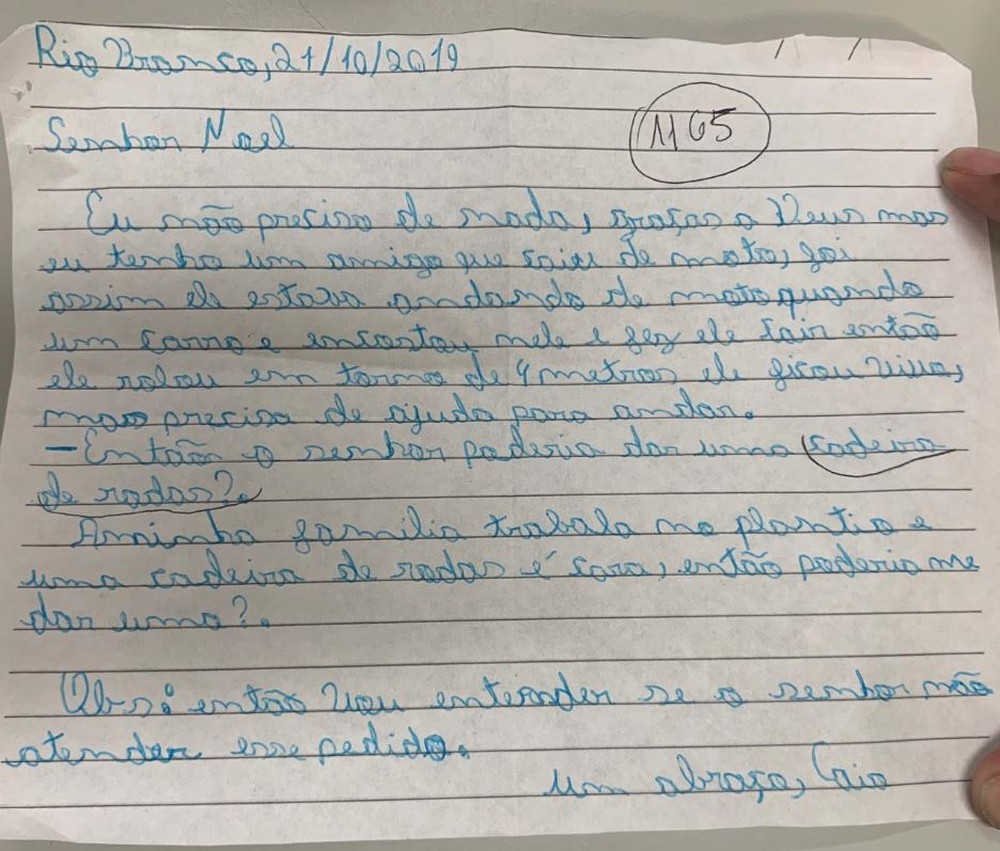 Rio Branco, 21/10/2019
Senhor Noel
1165
Eu não preciso de nada, graças a Deus mas
eu tenho um amigo que caiu de moto, foi
assim ele estava andando de moto quando
um carro e encostou nele e fez ele cair então
ele rolou em torno de 4 metros ele ficou vivo,
mas precisa de ajuda para andar.
- Então o senhor poderia dar uma cadeira
de rodas?.
Aminha família trabala no plantio e
uma cadeira de rodas é cara, então poderia me
dar uma?.
Obs: então vou entender se o senhor não
atender esse pedido.
um abraço, Caio